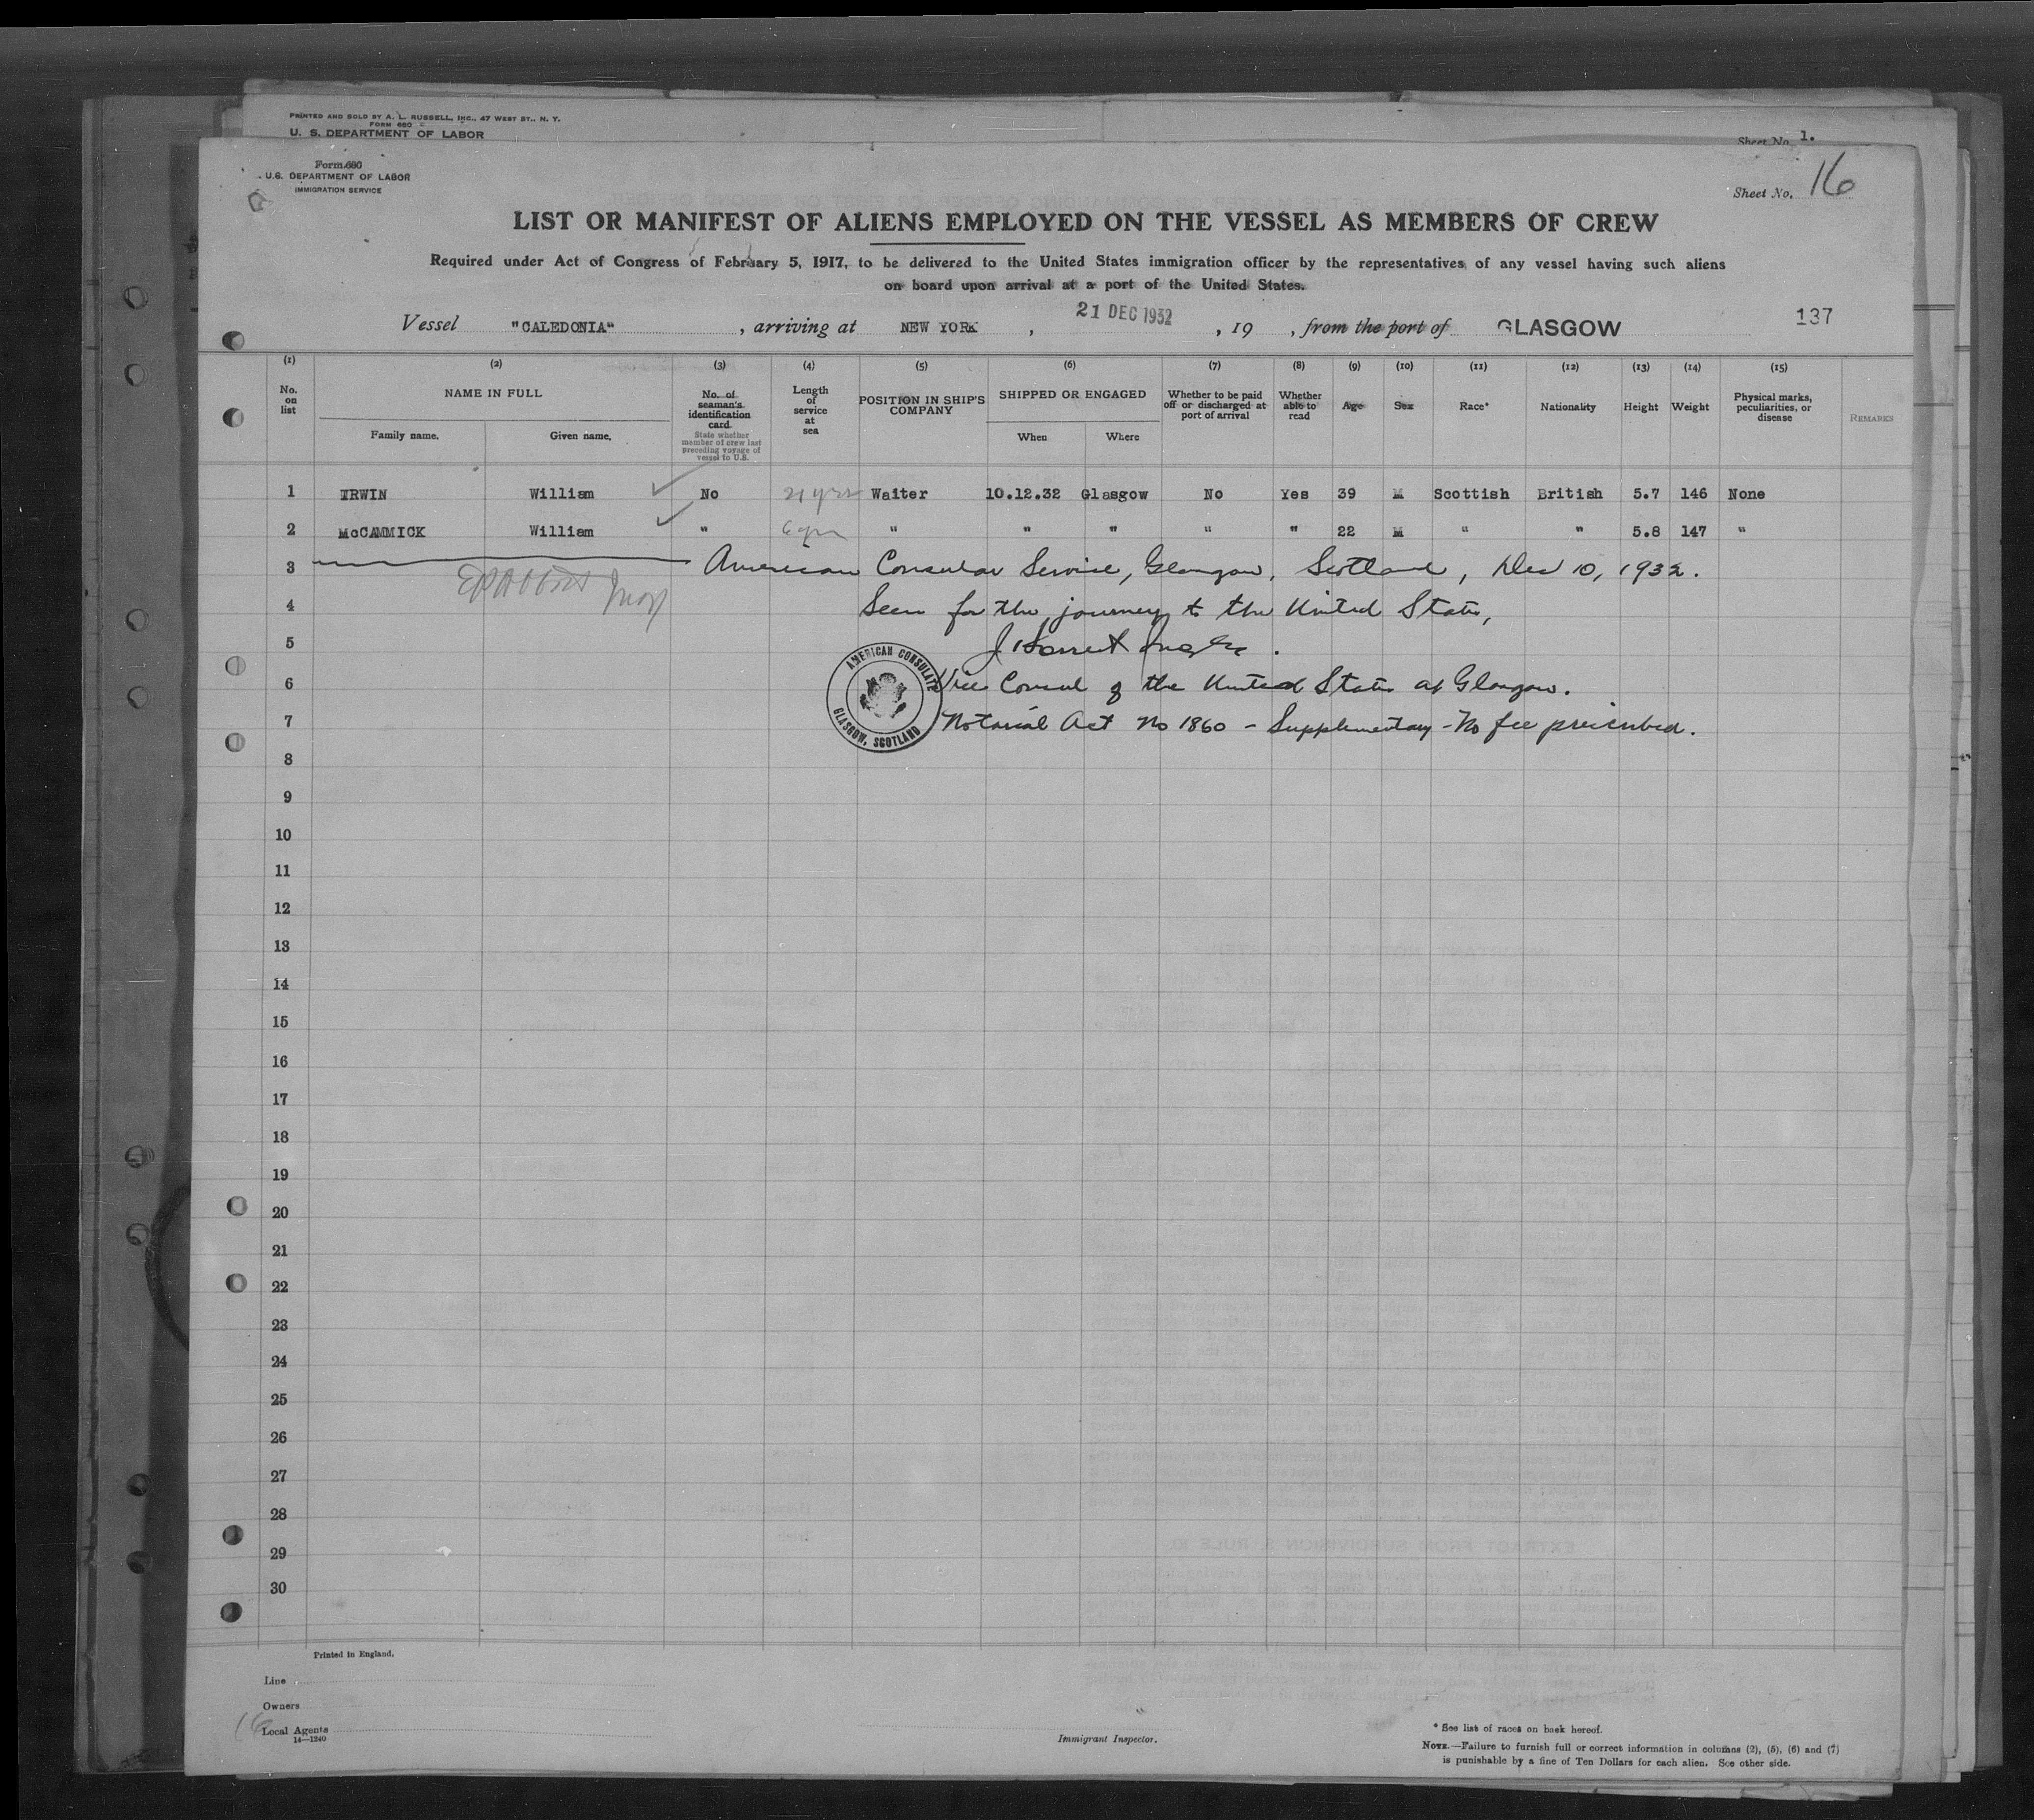 PRINTED AND SOLD BY A. L. RUSSELL, INC., 47 WEST ST., N. Y.
FORM 680
U. S. DEPARTMENT OF LABOR
Sheet No. 1.
Form 680
U.S. DEPARTMENT OF LABOR
IMMIGRATION SERVICE
Sheet No. 16
LIST OR MANIFEST OF ALIENS EMPLOYED ON THE VESSEL AS MEMBERS OF CREW
Required under Act of Congress of February 5, 1917, to be delivered to the United States immigration officer by the representatives of any vessel having such aliens
on board upon arrival at a port of the United States.
Vessel "CALEDONIA" , arriving at NEW YORK , 21 DEC 1932 , 19 , from the port of GLASGOW 137
(1) (2) (3) (4) (5) (6) (7) (8) (9) (10) (11) (12) (13) (14) (15)
No. on list
NAME IN FULL
Family name. Given name.
No. of seaman's identification card.
State whether member of crew last preceding voyage of vessel to U.S.
Length of service at sea
POSITION IN SHIP'S COMPANY
SHIPPED OR ENGAGED
When Where
Whether to be paid off or discharged at port of arrival
Whether able to read
Age
Sex
Race*
Nationality
Height
Weight
Physical marks, peculiarities, or disease
REMARKS
1 IRWIN William No 21 yrs Waiter 10.12.32 Glasgow No Yes 39 M Scottish British 5.7 146 None
2 McCAMMICK William " 6 " " " " " 22 M " " 5.8 147 "
3 American Consular Service, Glasgow, Scotland, Dec 10, 1932.
4 Seen for the journey to the United States,
5 J
6 Vice Consul of the United States at Glasgow.
7 Notarial Act No 1860 - Supplementary - No fee prescribed.
AMERICAN CONSULATE
GLASGOW, SCOTLAND
8
9
10
11
12
13
14
15
16
17
18
19
20
21
22
23
24
25
26
27
28
29
30
Printed in England.
Line
Owners
16
Local Agents
14—1240
Immigrant Inspector.
* See list of races on back hereof.
NOTE.—Failure to furnish full or correct information in columns (2), (5), (6) and (7)
is punishable by a fine of Ten Dollars for each alien. See other side.